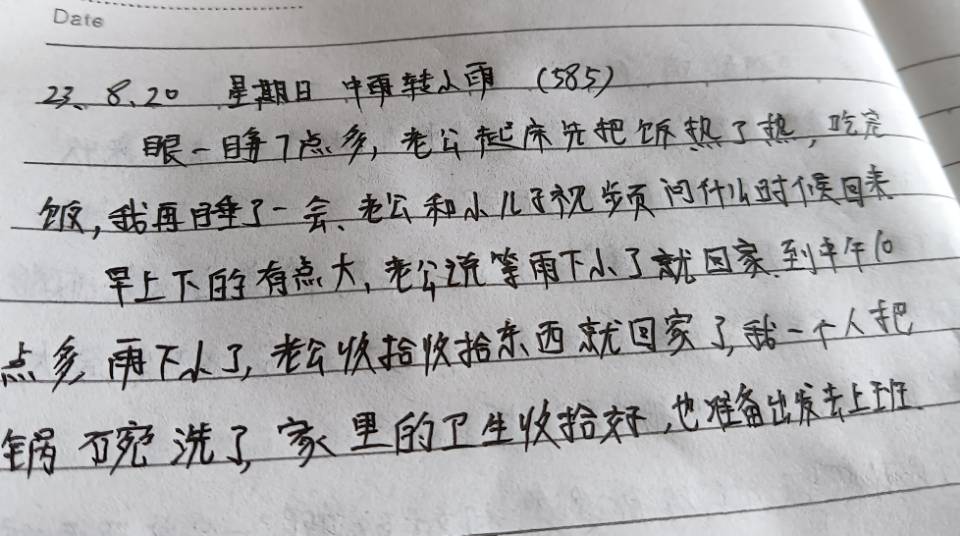 Date
23、8.20 星期日 中雨转小雨 (585)
眼一睁7点多,老公起床先把饭热了热,吃完
饭,我再睡了一会、老公和小儿子视频问什么时候回来
早上下的有点大,老公说等雨下小了就回家、到中午10
点多,雨下小了,老公收拾收拾东西就回家了,我一个人把
锅碗洗了,家里的卫生收拾好,也准备出发去上班.